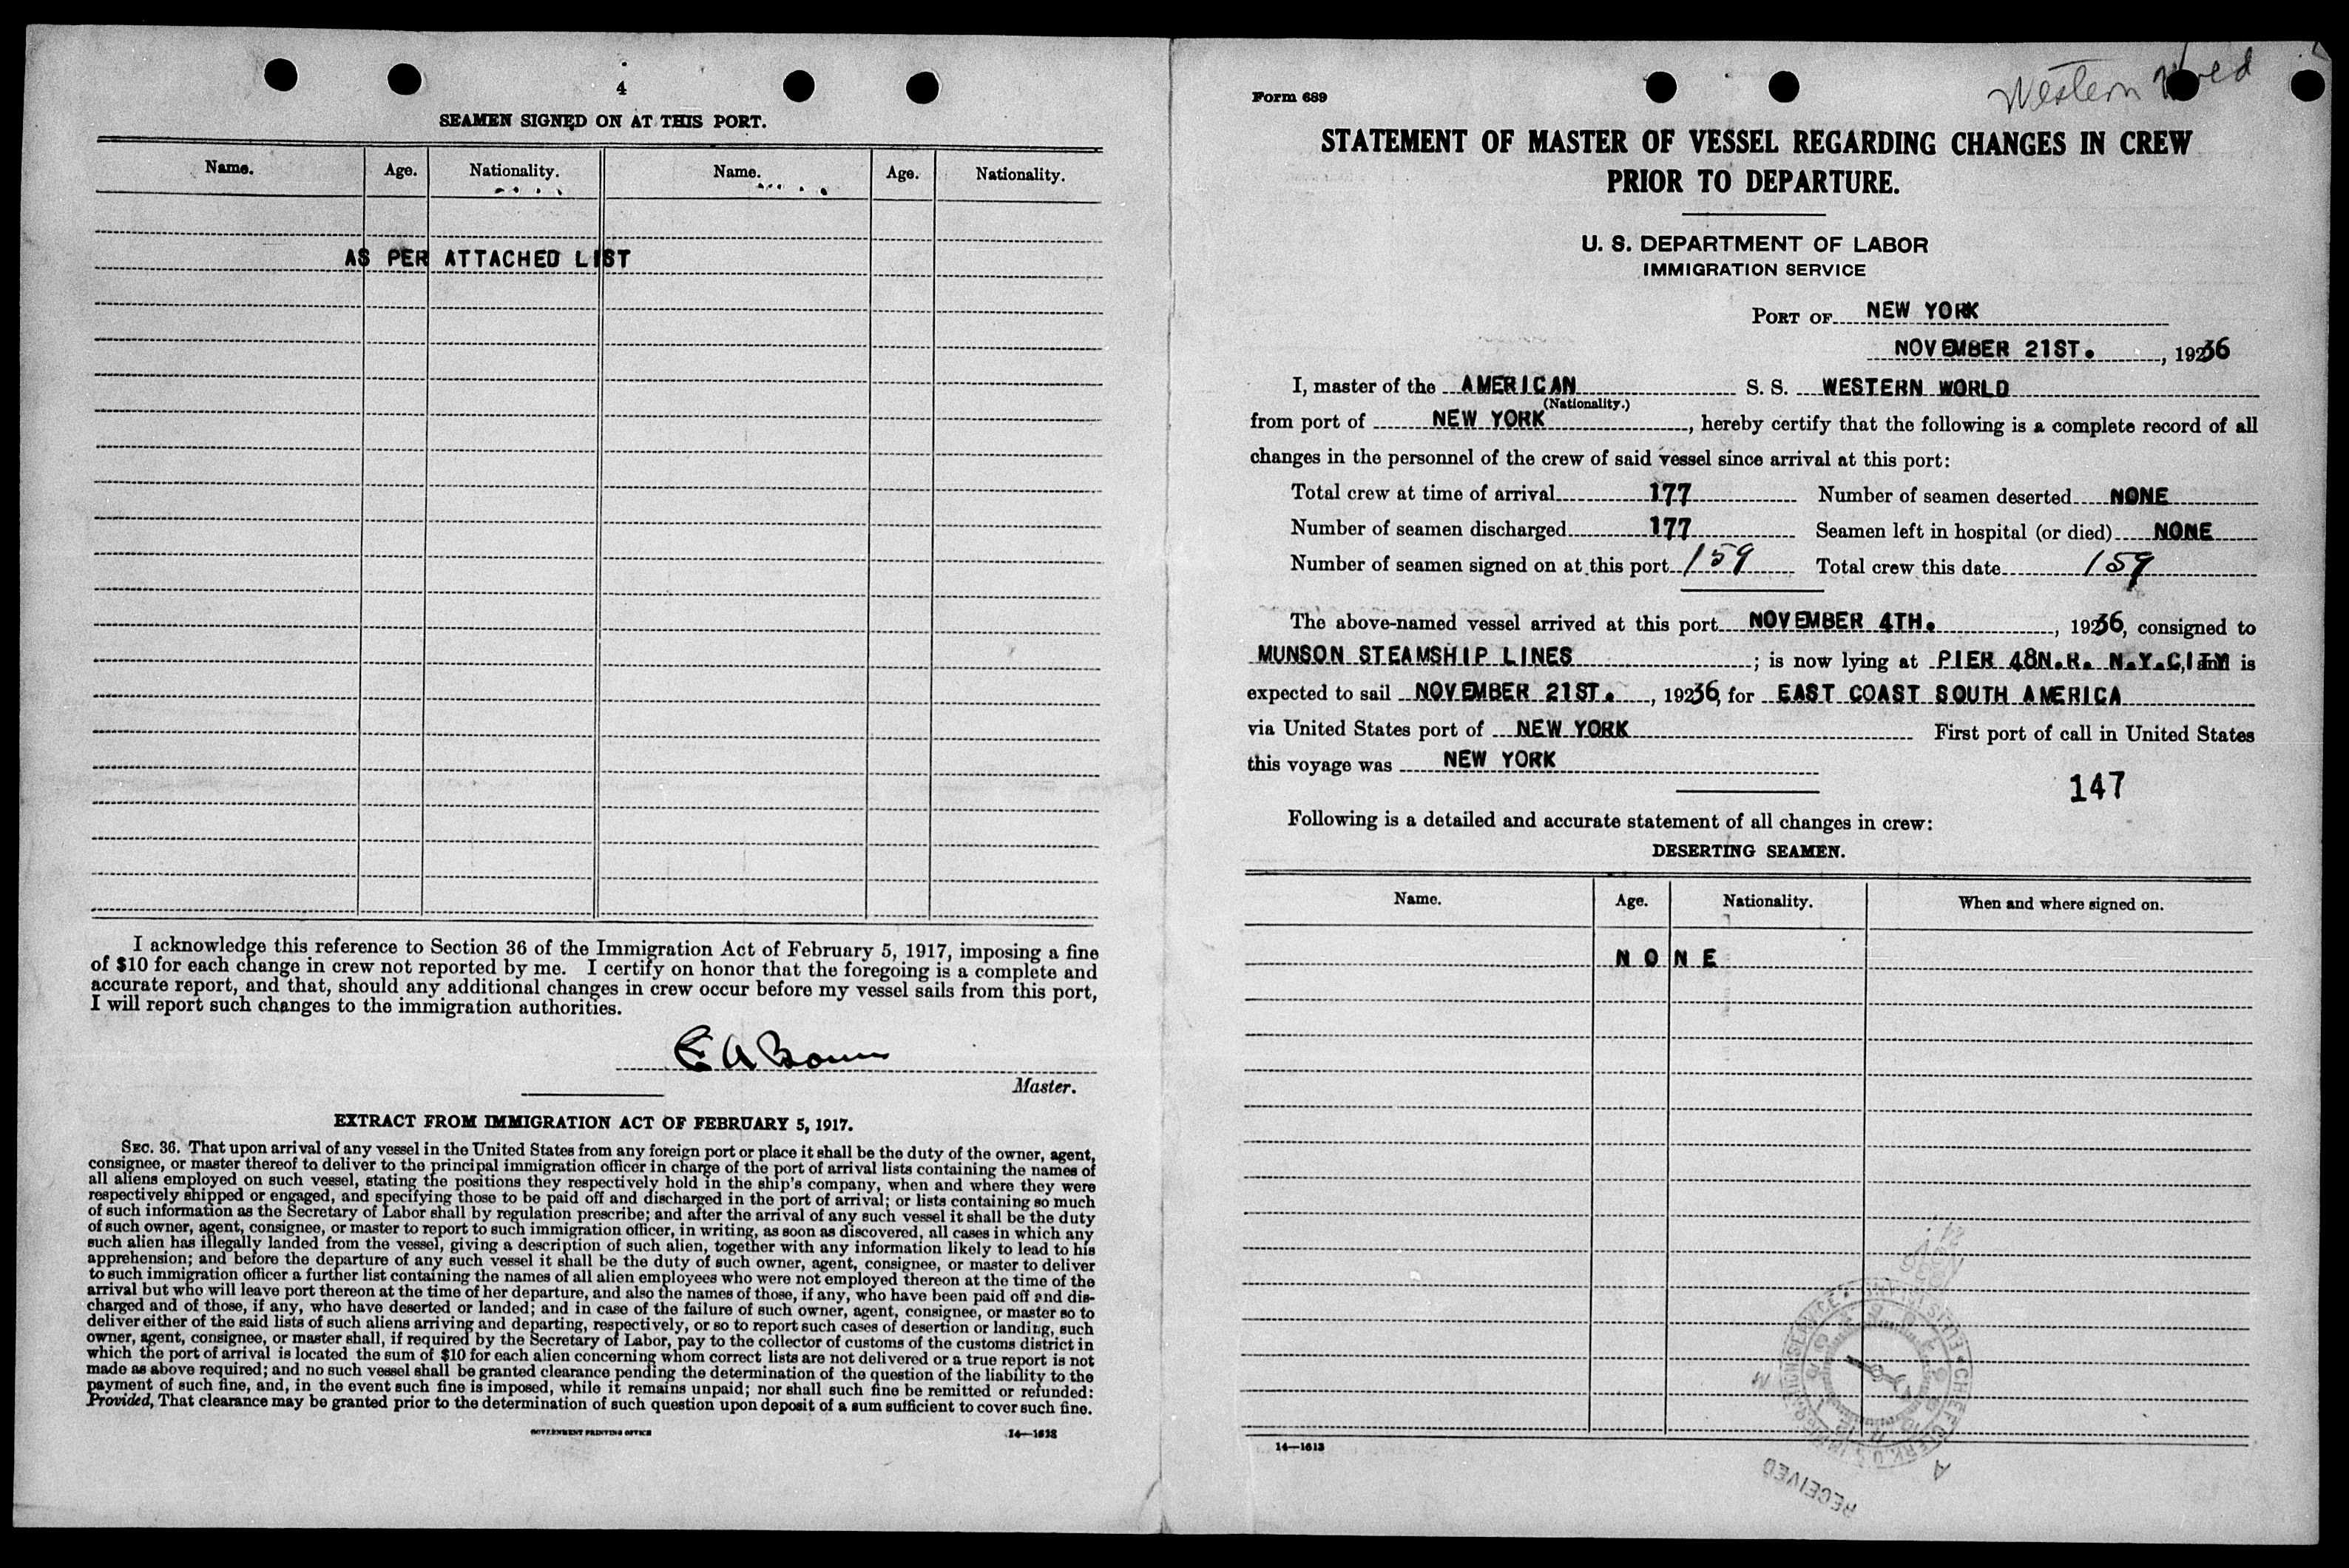 4
SEAMEN SIGNED ON AT THIS PORT.
Name. Age. Nationality. Name. Age. Nationality.
AS PER ATTACHED LIST
I acknowledge this reference to Section 36 of the Immigration Act of February 5, 1917, imposing a fine
of $10 for each change in crew not reported by me. I certify on honor that the foregoing is a complete and
accurate report, and that, should any additional changes in crew occur before my vessel sails from this port,
I will report such changes to the immigration authorities.
E A
Master.
EXTRACT FROM IMMIGRATION ACT OF FEBRUARY 5, 1917.
SEC. 36. That upon arrival of any vessel in the United States from any foreign port or place it shall be the duty of the owner, agent,
consignee, or master thereof to deliver to the principal immigration officer in charge of the port of arrival lists containing the names of
all aliens employed on such vessel, stating the positions they respectively hold in the ship's company, when and where they were
respectively shipped or engaged, and specifying those to be paid off and discharged in the port of arrival; or lists containing so much
of such information as the Secretary of Labor shall by regulation prescribe; and after the arrival of any such vessel it shall be the duty
of such owner, agent, consignee, or master to report to such immigration officer, in writing, as soon as discovered, all cases in which any
such alien has illegally landed from the vessel, giving a description of such alien, together with any information likely to lead to his
apprehension; and before the departure of any such vessel it shall be the duty of such owner, agent, consignee, or master to deliver
to such immigration officer a further list containing the names of all alien employees who were not employed thereon at the time of the
arrival but who will leave port thereon at the time of her departure, and also the names of those, if any, who have been paid off and dis-
charged and of those, if any, who have deserted or landed; and in case of the failure of such owner, agent, consignee, or master so to
deliver either of the said lists of such aliens arriving and departing, respectively, or so to report such cases of desertion or landing, such
owner, agent, consignee, or master shall, if required by the Secretary of Labor, pay to the collector of customs of the customs district in
which the port of arrival is located the sum of $10 for each alien concerning whom correct lists are not delivered or a true report is not
made as above required; and no such vessel shall be granted clearance pending the determination of the question of the liability to the
payment of such fine, and, in the event such fine is imposed, while it remains unpaid; nor shall such fine be remitted or refunded:
Provided, That clearance may be granted prior to the determination of such question upon deposit of a sum sufficient to cover such fine.
GOVERNMENT PRINTING OFFICE 14—1613
Form 689
Western
STATEMENT OF MASTER OF VESSEL REGARDING CHANGES IN CREW
PRIOR TO DEPARTURE.
U. S. DEPARTMENT OF LABOR
IMMIGRATION SERVICE
PORT OF NEW YORK
NOVEMBER 21ST. , 1936
I, master of the AMERICAN S. S. WESTERN WORLD
(Nationality.)
from port of NEW YORK , hereby certify that the following is a complete record of all
changes in the personnel of the crew of said vessel since arrival at this port:
Total crew at time of arrival 177 Number of seamen deserted NONE
Number of seamen discharged 177 Seamen left in hospital (or died) NONE
Number of seamen signed on at this port 159 Total crew this date 159
The above-named vessel arrived at this port NOVEMBER 4TH. , 1936, consigned to
MUNSON STEAMSHIP LINES ; is now lying at PIER 48N.R. N.Y.C,ITY and is
expected to sail NOVEMBER 21ST. , 1936, for EAST COAST SOUTH AMERICA
via United States port of NEW YORK First port of call in United States
this voyage was NEW YORK
147
Following is a detailed and accurate statement of all changes in crew:
DESERTING SEAMEN.
Name. Age. Nationality. When and where signed on.
NONE
14—1613
RECEIVED